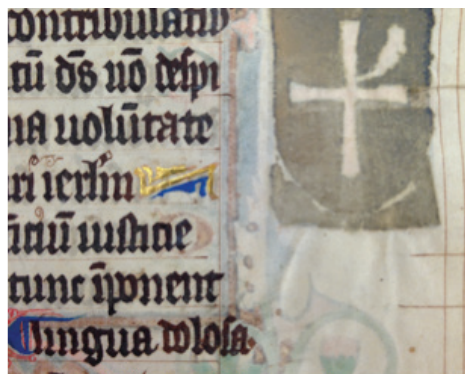 contribulatus
tū ds̄ nō despi
na uolūtate
ri ierl̄m
iciū iusticie
tunc īponent
lingua dolosa.